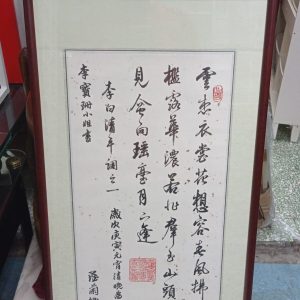 雲想衣裳花想容春風拂
檻露華濃若非群玉山頭
見會向瑤臺月下逢
李白清平調之一
歲次庚寅元宵清晚
李寶珊小姐書